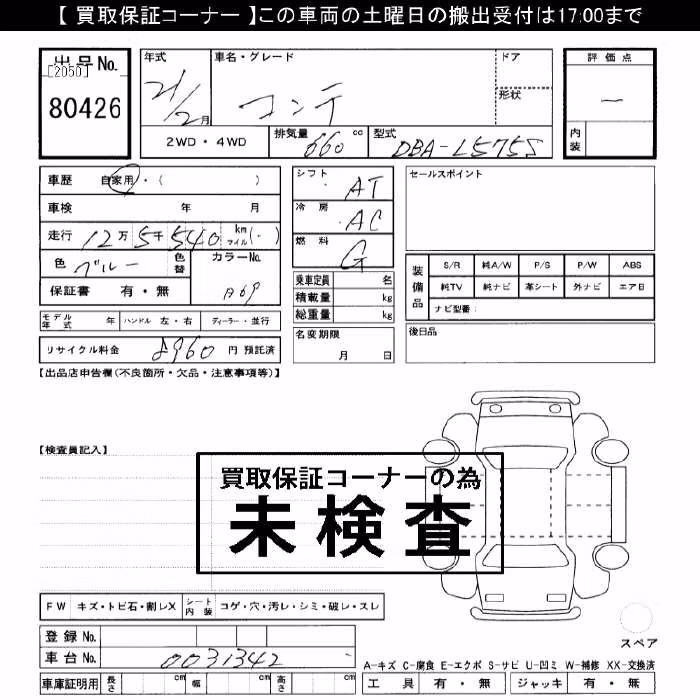 【 買取保証コーナー 】この車両の土曜日の搬出受付は17:00まで
出品No.
[2050]
80426
年式
21/2月
車名・グレード
コンテ
ドア
形状
2WD・4WD
排気量
660 cc
型式
DBA-L575S
評価点
―
内装
車歴 自家用・( )
車検 年 月
走行 12万5千540 km マイル(・)
色 ブルー 色替
カラーNo.
B69
保証書 有・無
モデル年式 年 ハンドル 左・右 ディーラー・並行
リサイクル料金 8960 円 預託済
シフト AT
冷房 AC
燃料 G
乗車定員 名
積載量 kg
総重量 kg
名変期限
月 日
セールスポイント
装備品
S/R 純A/W P/S P/W ABS
純TV 純ナビ 革シート 外ナビ エアB
ナビ型番:
後日品
【出品店申告欄(不良箇所・欠品・注意事項等)】
【検査員記入】
買取保証コーナーの為
未検査
FW キズ・トビ石・割レX
シート内装 コゲ・穴・汚レ・シミ・破レ・スレ
登録No.
車台No. 0031342
車庫証明用 長さ cm 幅 cm 高さ cm
スペア
A-キズ C-腐食 E-エクボ S-サビ U-凹ミ W-補修 XX-交換済
工具 有・無 ジャッキ 有・無